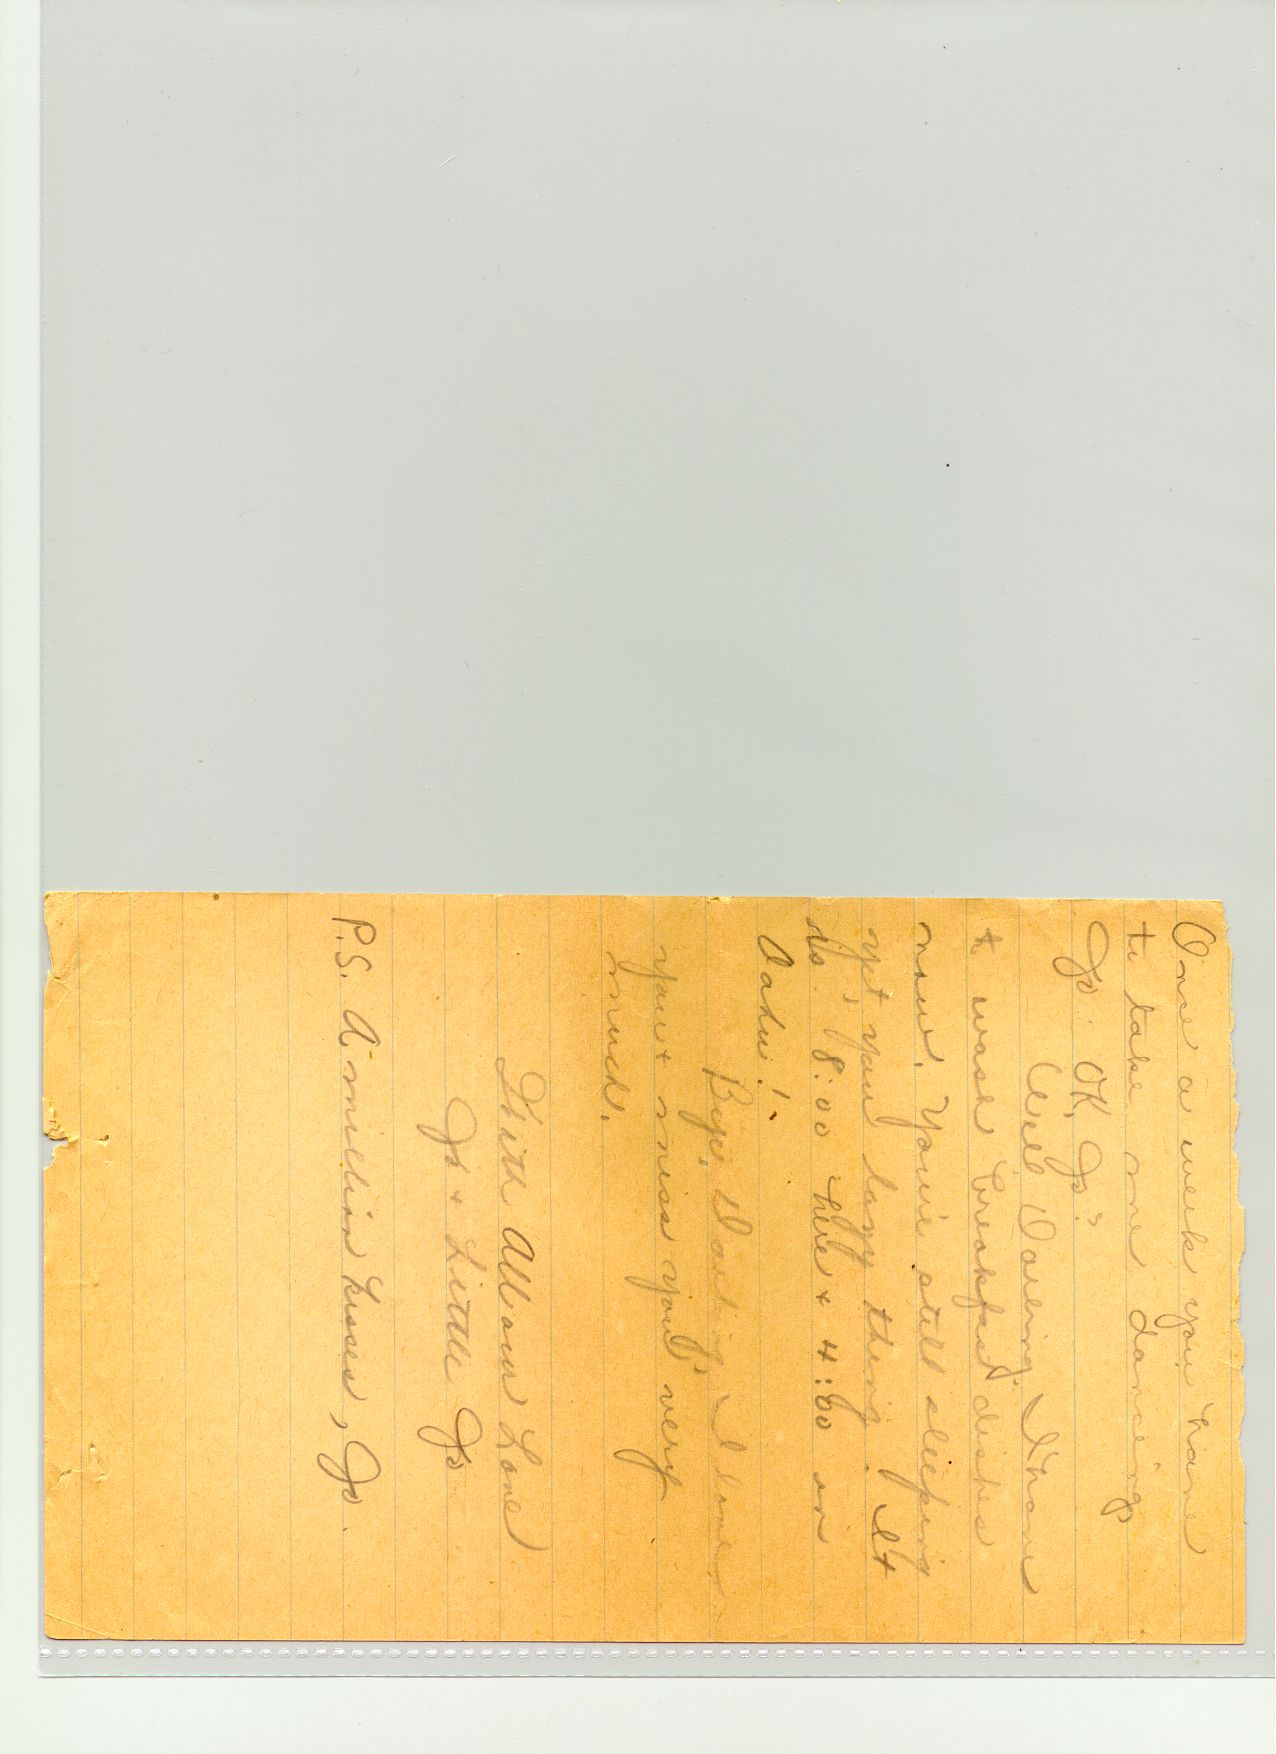 Once a week you have
to take me dancing
Jo. OK, Jo?
Well Darling, I have
to wash breakfast dishes
now. You're still sleeping
yet, you lazy thing. It
is 8:00 here & 4:00 in
Oahu!
Bye, Darling, I love
you & miss you very
much.
With All our Love
Jo & Little Jo.
P.S. A million kisses, Jo.